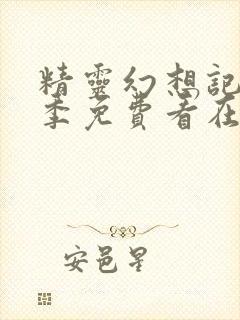 精靈幻想記
季免費看在
安邑星